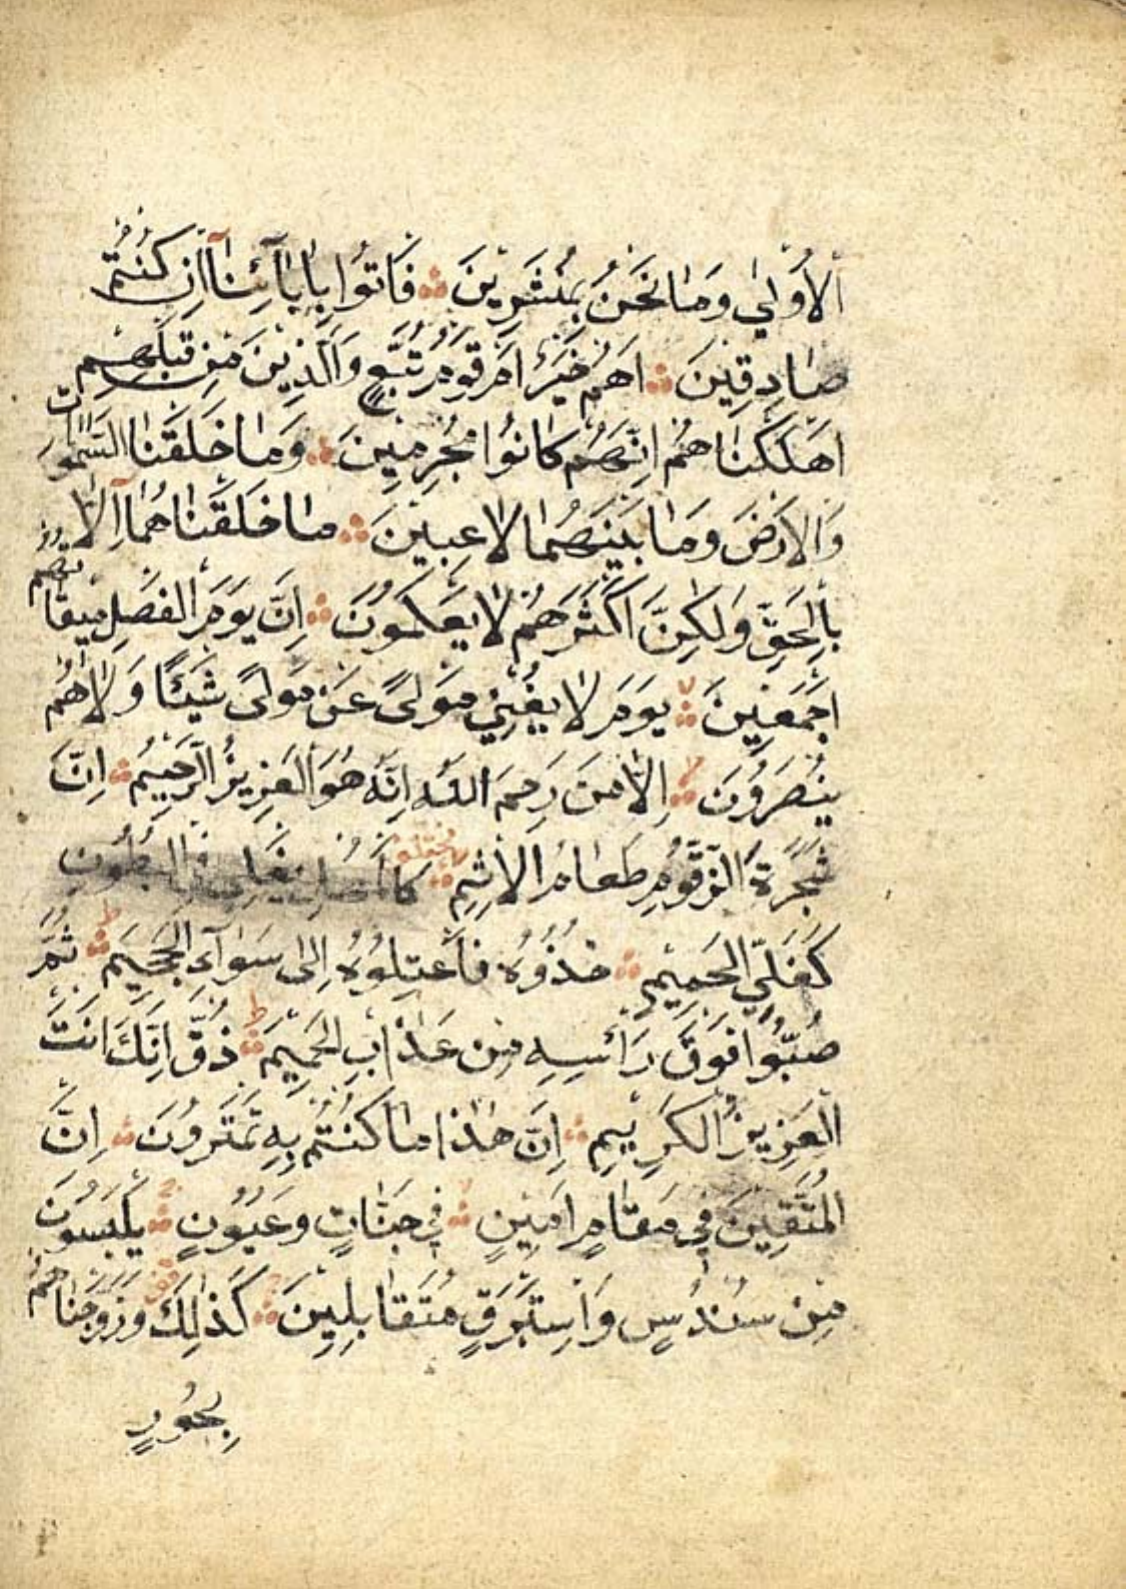 الْاُولٰي وَمٰا نَحْنُ بِمُنْشَرِينَ فَاْتُوا بِاٰبٰٓائِنٰٓا اِنْ كُنْتُمْ
صٰادِقِينَ اَهُمْ خَيْرٌ اَمْ قَوْمُ تُبَّعٍ وَالَّذِينَ مِنْ قَبْلِهِمْ
اَهْلَكْنٰاهُمْ اِنَّهُمْ كٰانُوا مُجْرِمِينَ وَمٰا خَلَقْنٰا السَّمٰوٰاتِ
وَالْاَرْضَ وَمٰا بَيْنَهُمٰا لٰاعِبِينَ مٰا خَلَقْنٰاهُمٰٓا اِلّٰا
بِالْحَقِّ وَلٰكِنَّ اَكْثَرَهُمْ لٰا يَعْلَمُونَ اِنَّ يَوْمَ الْفَصْلِ مِيقٰاتُهُمْ
اَجْمَعِينَ يَوْمَ لٰا يُغْنِي مَوْلًى عَنْ مَوْلًى شَيْئًا وَلٰا هُمْ
يُنْصَرُونَ اِلّٰا مَنْ رَحِمَ اللّٰهُ اِنَّهُ هُوَ الْعَزِيزُ الرَّحِيمُ اِنَّ
شَجَرَةَ الزَّقُّومِ طَعٰامُ الْاَثِيمِ كَالْمُهْلِ يَغْلِي فِي الْبُطُونِ
كَغَلْيِ الْحَمِيمِ خُذُوهُ فَاعْتِلُوهُ اِلٰى سَوٰٓاءِ الْجَحِيمِ ثُمَّ
صُبُّوا فَوْقَ رَأْسِهِ مِنْ عَذٰابِ الْحَمِيمِ ذُقْ اِنَّكَ اَنْتَ
الْعَزِيزُ الْكَرِيمُ اِنَّ هٰذٰا مٰا كُنْتُمْ بِهِ تَمْتَرُونَ اِنَّ
الْمُتَّقِينَ فِي مَقٰامٍ اَمِينٍ فِي جَنّٰاتٍ وَعُيُونٍ يَلْبَسُونَ
مِنْ سُنْدُسٍ وَاِسْتَبْرَقٍ مُتَقٰابِلِينَ كَذٰلِكَ وَزَوَّجْنٰاهُمْ
بِحُورٍ